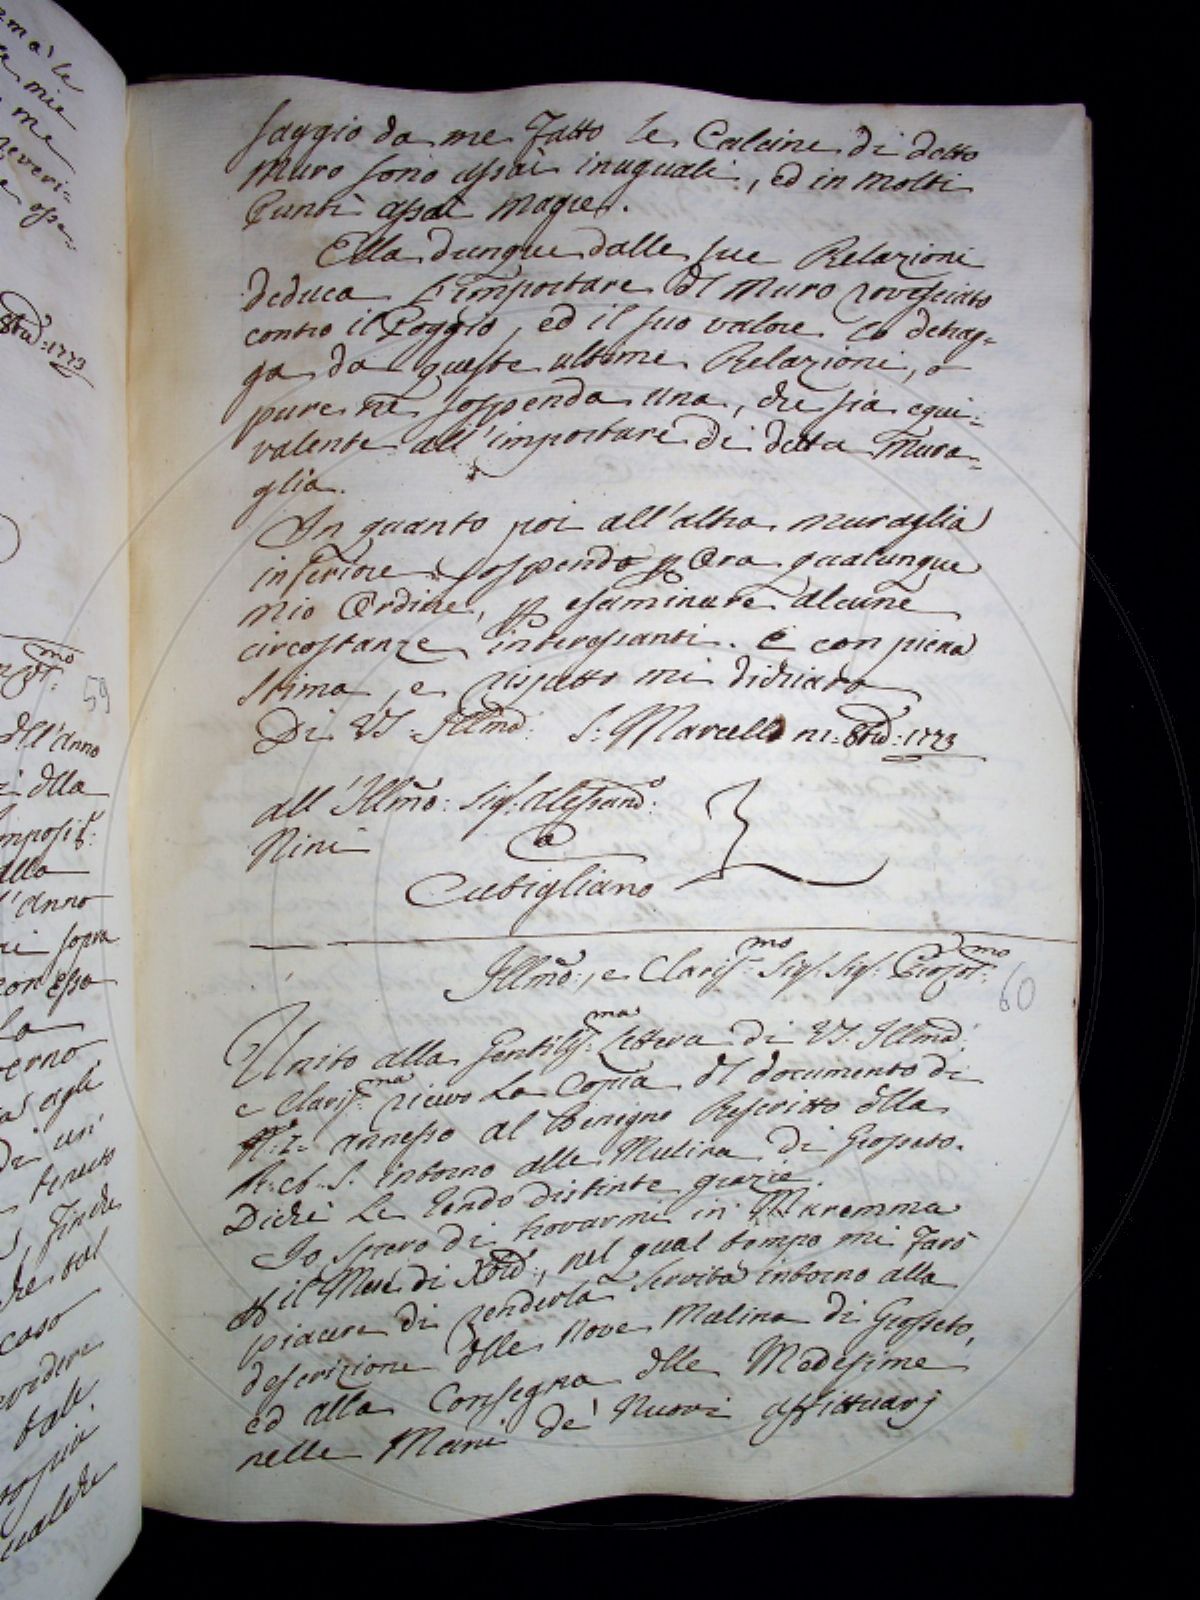 saggio da me Fatto le Calcine di detto
Muro sono assai inuguali, ed in molti
Punti assai magre.
Ella dunque dalle sue Relazioni
deduca l'importare del Muro rovesciato
contro il Poggio, ed il suo valore lo detrag-
ga da queste ultime Relazioni, o
pure ne sospenda una, che sia equi-
valente all'importare di detta Mura-
glia.
In quanto poi all'altra muraglia
inferiore sospendo p Ora qualunque
mio Ordine, p esaminare alcune
circostanze interessanti. e con piena
stima, e rispetto mi dichiaro
Di VS. Illma: S: Marcello ni: 8bre: 1773
all'Illmo: Sig: Alessandro:
Nini
a
Cutigliano
Illmo:, e Clariss:mo Sig: Sig:
60
Unito alla Gentiliss:ma Lettera di VS. Illma:
e Clariss:ma ricevo la Copia del documento di
annesso al Benigno Rescritto della
intorno alle Mulina di Grosseto.
Di che le rendo distinte grazie.
Io spero di trovarmi in Maremma
il Mese di Xbre:, nel qual tempo mi Farò
piacere di renderla servita intorno alla
descrizione delle Nove Mulina di Grosseto,
ed alla Consegna delle Medesime
nelle Mani de' Nuovi Affittuarj
mie
me
8bre: 1773
59
dell'Anno
della
alla
l'Anno
sopra
con esso
La
egli
Di un'
tenuto
Finche
tal
caso
tale